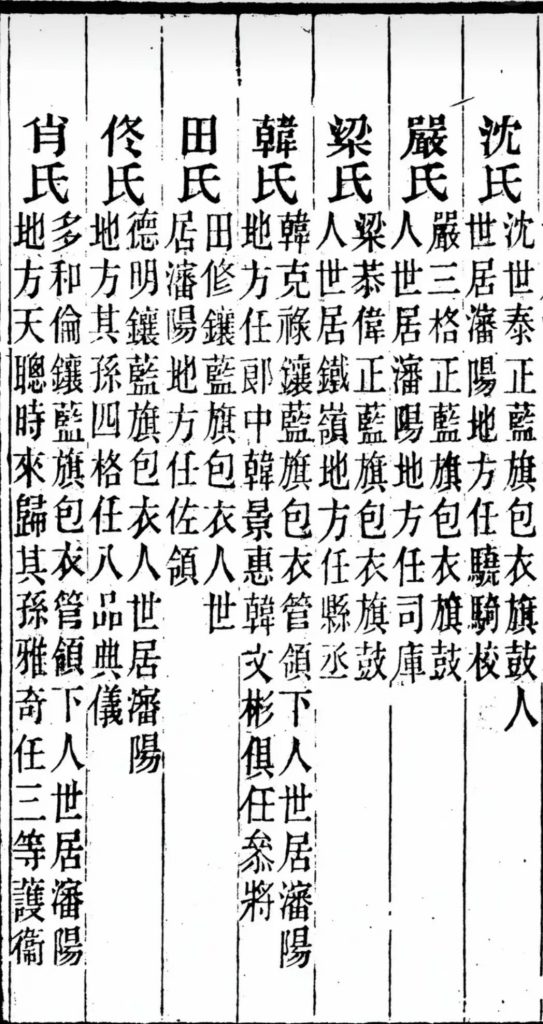 沈氏
沈世泰正藍旗包衣旗鼓人
世居瀋陽地方任驍騎校
嚴氏
嚴三格正藍旗包衣旗鼓
人世居瀋陽地方任司庫
梁氏
梁恭偉正藍旗包衣旗鼓
人世居鐵嶺地方任縣丞
韓氏
韓克祿鑲藍旗包衣管領下人世居瀋陽
地方任郎中韓景惠韓文彬俱任叅將
田氏
田修鑲藍旗包衣人世
居瀋陽地方任佐領
佟氏
德明鑲藍旗包衣人世居瀋陽
地方其孫四格任八品典儀
肖氏
多和倫鑲藍旗包衣管領下人世居瀋陽
地方天聰時來歸其孫雅奇任三等護衛